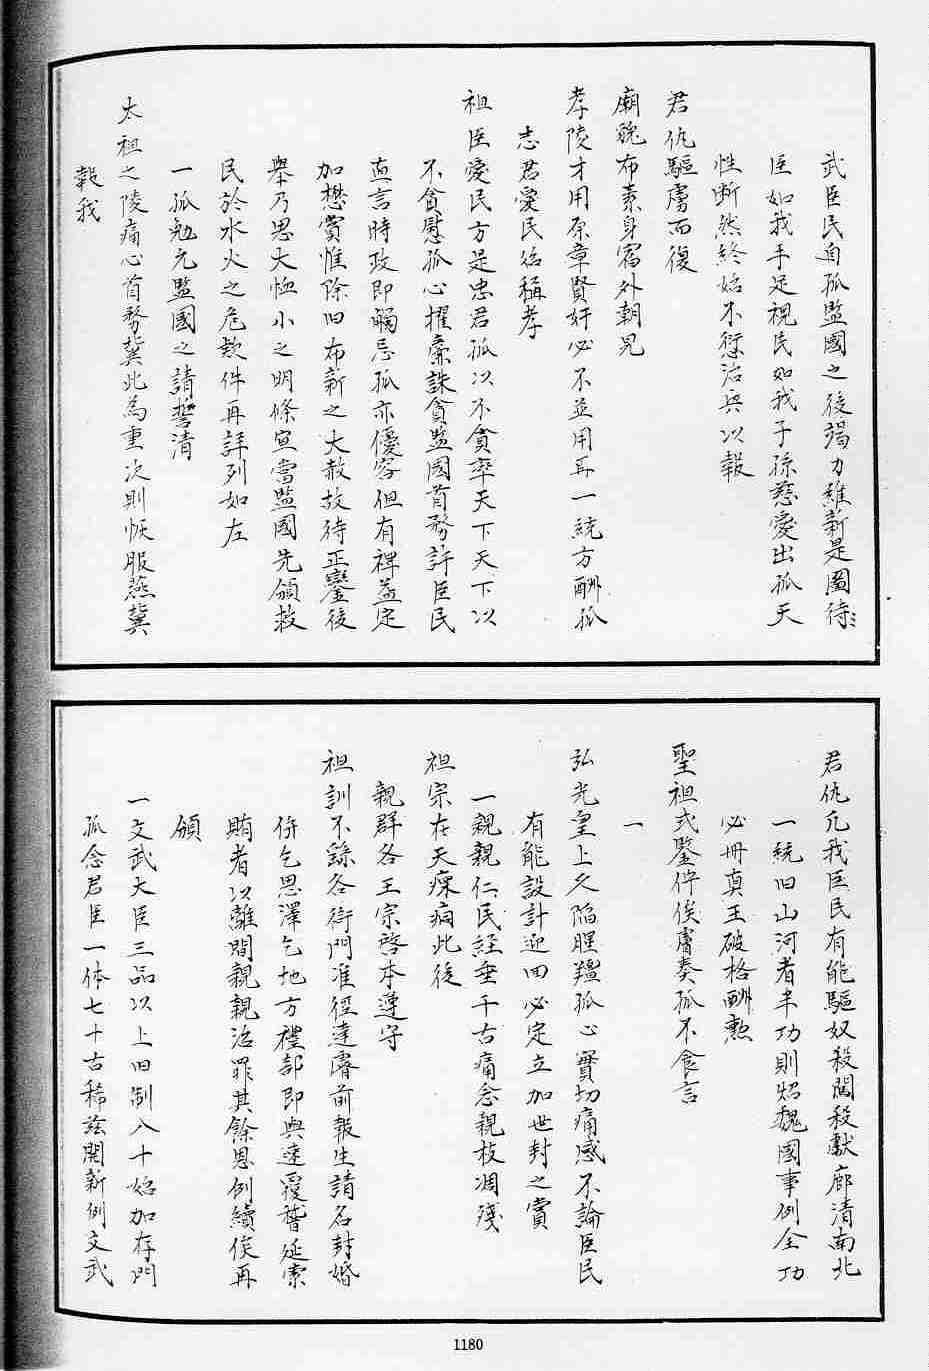 武臣民自孤監國之後竭力維新是圖待
臣如我手足視民如我子孫慈愛出孤天
性断然終始不愆治兵以報
君仇驅虜而復
廟䝉布素身宿外朝見
孝陵才用原章賢奸必不並用耳一統方酬孤
志君愛民始稱孝
祖臣愛民方是忠君孤以不貪率天下天下以
不貪慰孤心擢亷誅貪監國首務許臣民
直言時政即觸忌孤亦優容但有裨益定
加懋賞惟除旧布新之大赦故待正鑾後
舉乃思大恤小之明條宣當監國先頒救
民於水火之危欵件再詳列如左
一孤勉允監國之請誓清
太祖之陵痛心首務冀此為重次則恢服燕冀
報我
君仇凢我臣民有能驅奴殺闖殺獻廊清南北
一統旧山河者半功則炤魏國事例全功
必冊真王破格酬勲
聖祖式鑒伻俟膚奏孤不食言
一
弘光皇上久陷腥羶孤心實切痛感不論臣民
有能設計迎囬必定立加世封之賞
一親親仁民経垂千古痛念親枝凋殘
祖宗在天瘝痌此後
親群各王宗啓本遵守
祖訓不繇各衙門准徑達睿前報生請名封婚
併乞恩澤乞地方禮部即與速覆稽延索
賄者以離間親親治罪其餘恩例續俟再
頒
一文武大臣三品以上旧制八十始加存門
孤念君臣一体七十古稀玆開新例文武
1180